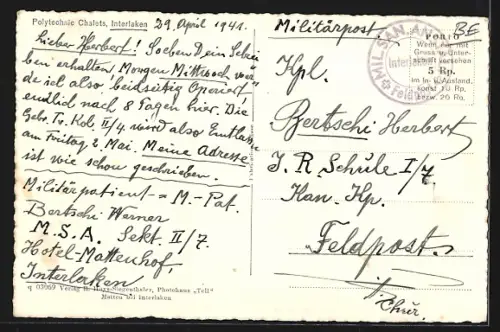 Polytechnic Chalets, Interlaken
29. April 1941.
Lieber Herbert! Soeben Dein Schrei-
ben erhalten! Morgen Mittwoch wer-
de ich also beidseitig Operiert
endlich nach 8 Tagen hier. Die
Geb. Tr. Kol. II/4 wird also Entlasse
am Freitag 2. Mai. Meine Adresse
ist wie schon geschrieben.
Militärpatient = M.-Pat.
Bertschi Werner
M. S. A. Sekt. II/7
Hotel-Mattenhof,
Interlaken
Photohaus „Tell"
Matten bei Interlaken
Militärpost.
BE
MIL. SAN. AN
Interl
Feld
PORTO
Wenn nur mit
Gruss u. Unter-
schrift versehen
5 Rp.
im In- u. Ausland,
sonst 10 Rp.
bezw. 20 Rp.
Kpl.
Bertschi Herbert
I. R. Schule I/7
Kan. Kp.
Feldpost.
Chur.